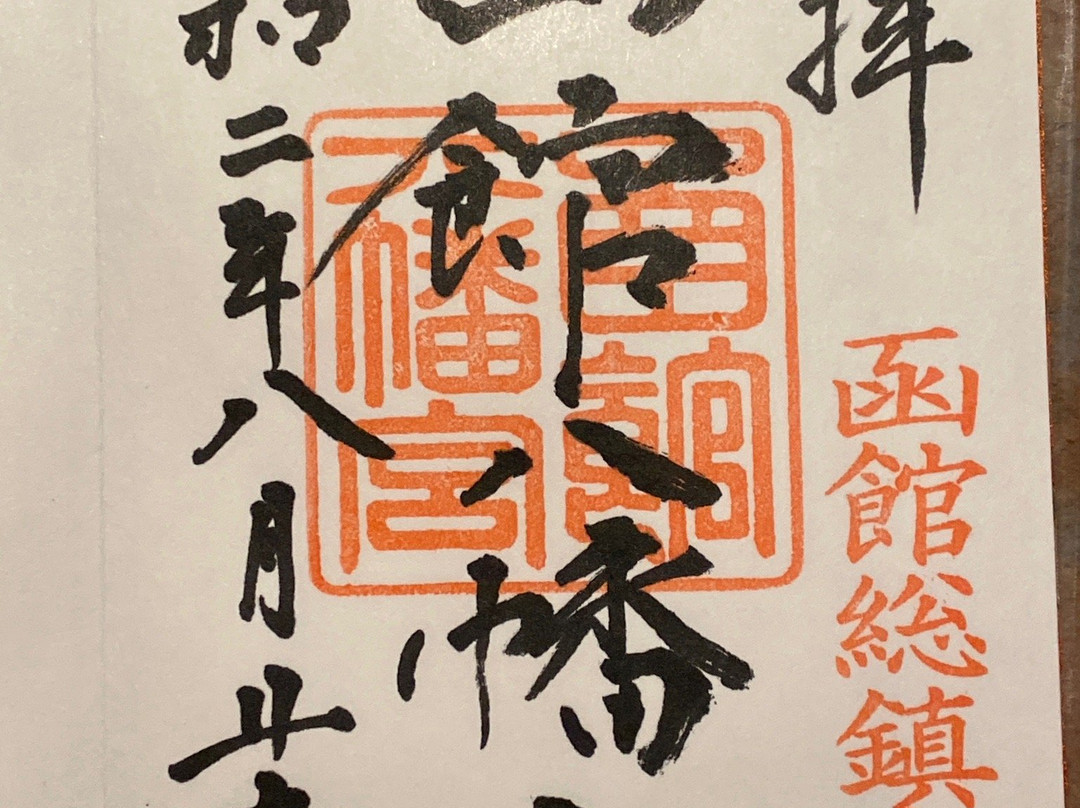 拝
函館総鎮
館八幡
函館
八幡宮
和二年八月廿